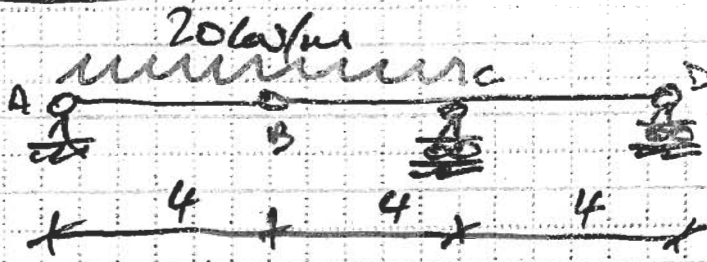 20kN/m
A C D
B
4 4 4